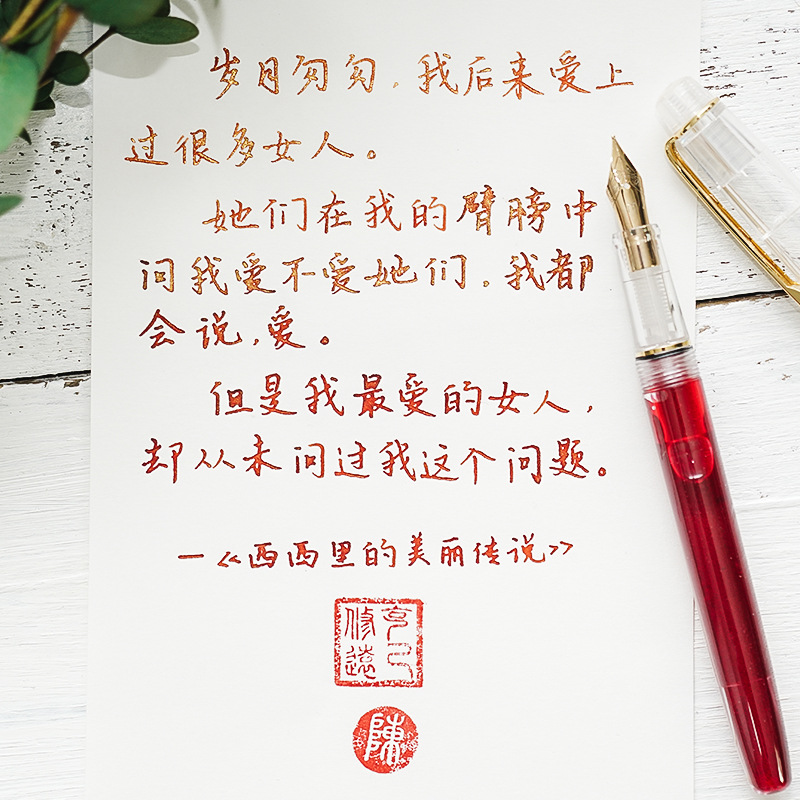 岁月匆匆，我后来爱上
过很多女人。
她们在我的臂膀中
问我爱不爱她们，我都
会说，爱。
但是我最爱的女人，
却从未问过我这个问题。
—《西西里的美丽传说》
陳